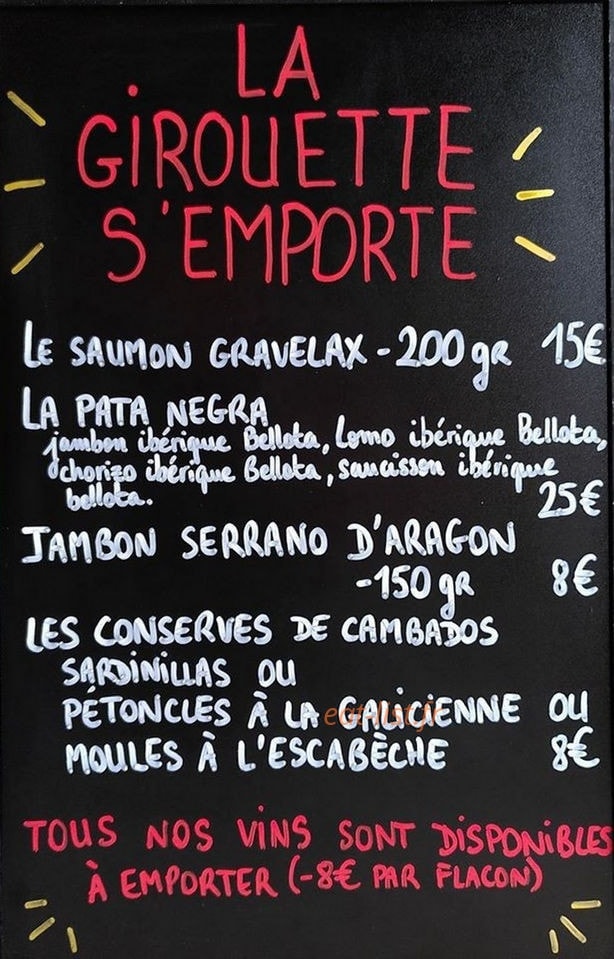 LA
GIROUETTE
S'EMPORTE
LE SAUMON GRAVELAX - 200 gr 15€
LA PATA NEGRA
jambon ibérique Bellota, Lomo ibérique Bellota,
chorizo ibérique Bellota, saucisson ibérique
bellota.
25€
JAMBON SERRANO D'ARAGON
-150 gr 8€
LES CONSERVES DE CAMBADOS
SARDINILLAS OU
PÉTONCLES À LA GALICIENNE OU
eat-list.fr
MOULES À L'ESCABÈCHE 8€
TOUS NOS VINS SONT DISPONIBLES
À EMPORTER (-8€ PAR FLACON)